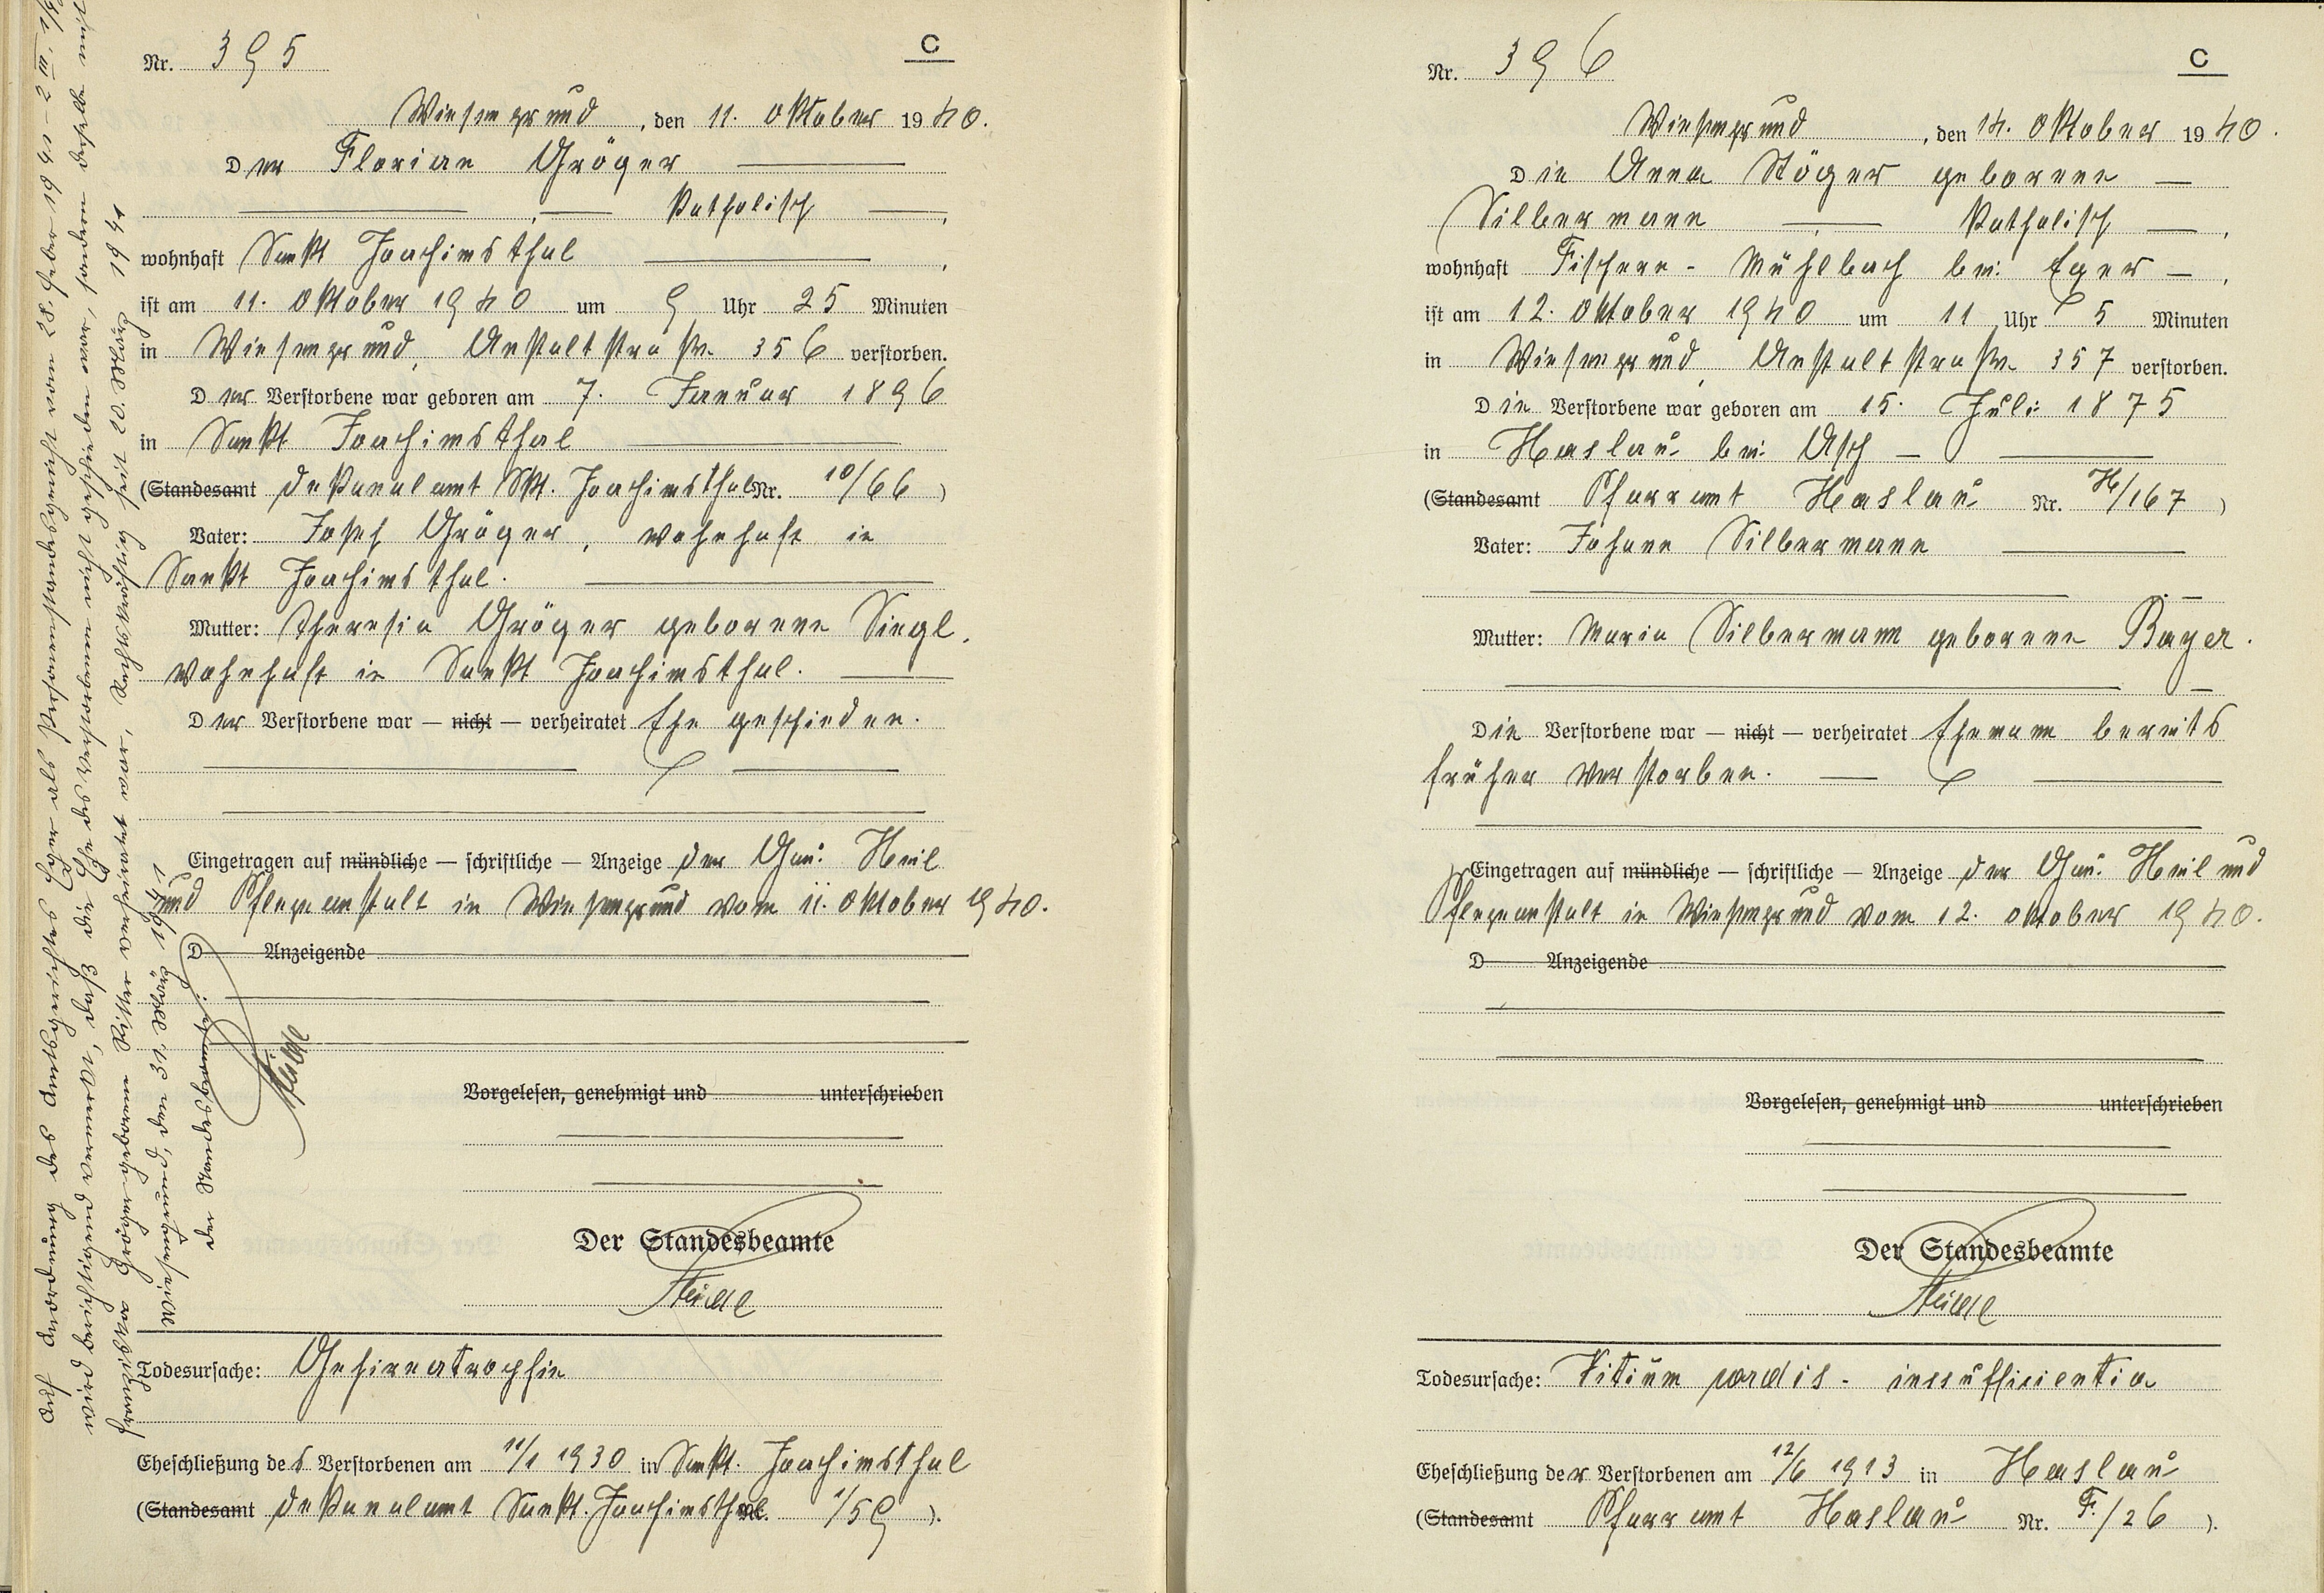 Nr. 395
C
Wiesengrund, den 11. Oktober 1940.
Der Florian Gröger
katholisch,
wohnhaft Sankt Joachimsthal,
ist am 11. Oktober 1940 um 9 Uhr 25 Minuten
in Wiesengrund, Anstaltstrasse 356 verstorben.
Der Verstorbene war geboren am 7. Januar 1896
in Sankt Joachimsthal
(Standesamt Dekanalamt Skt. Joachimsthal Nr. 10/66)
Vater: Josef Gröger, wohnhaft in
Sankt Joachimsthal.
Mutter: Theresia Gröger geborene Siegl,
wohnhaft in Sankt Joachimsthal.
Der Verstorbene war — nicht — verheiratet Ehe geschieden.
Eingetragen auf mündliche — schriftliche — Anzeige der Gau: Heil
und Pflegeanstalt in Wiesengrund vom 11. Oktober 1940.
D Anzeigende
Vorgelesen, genehmigt und unterschrieben
Der Standesbeamte
Todesursache: Gehirnatrophie
Eheschließung des Verstorbenen am 11/1 1930 in Sankt. Joachimsthal
(Standesamt Dekanalamt Sankt. Joachimsthal Nr. 1/59).
Auf Anordnung des Amtsgerichtes Eger als Personenstandsgericht vom 28. Feber 1941 - 2 III.
wird berichtigend vermerkt, daß die Ehe des Verstorbenen nicht geschieden war, sondern derselbe mit
Franziska Gröger geborenen verheiratet war, Rechtskräftig seit 20. März 1941
Wiesengrund, den 31. März 1941
Der Standesbeamte:
Nr. 396
C
Wiesengrund, den 14. Oktober 1940.
Die Anna Stöger geborene
Silbermann katholisch,
wohnhaft Fischern - Mühlbach bei Eger,
ist am 12. Oktober 1940 um 11 Uhr 5 Minuten
in Wiesengrund, Anstaltstrasse 357 verstorben.
Die Verstorbene war geboren am 15. Juli 1875
in Haslau bei Asch
(Standesamt Pfarramt Haslau Nr. H/167)
Vater: Johann Silbermann
Mutter: Maria Silbermann geborene Bayer.
Die Verstorbene war — nicht — verheiratet Ehemann bereits
früher verstorben.
Eingetragen auf mündliche — schriftliche — Anzeige der Gau: Heil und
Pflegeanstalt in Wiesengrund vom 12. Oktober 1940.
D Anzeigende
Vorgelesen, genehmigt und unterschrieben
Der Standesbeamte
Todesursache: Vitium cordis - insufficientia
Eheschließung der Verstorbenen am 12/6 1913 in Haslau
(Standesamt Pfarramt Haslau Nr. F./26).